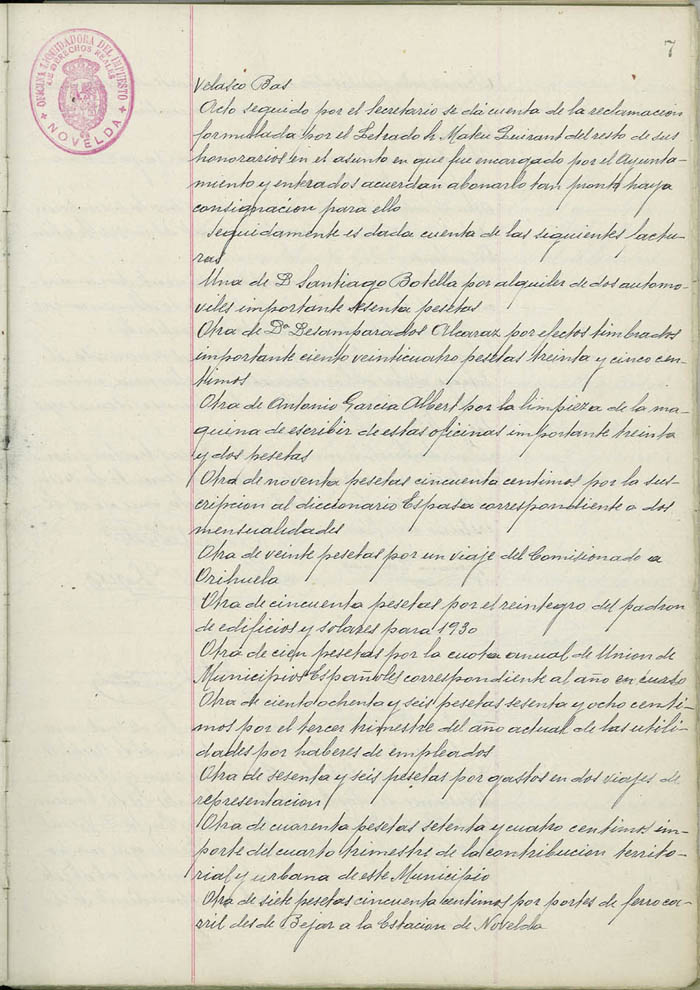 7
OFICINA LIQUIDADORA DEL IMPUESTO
DE DERECHOS REALES
NOVELDA
Velasco Bas
Acto seguido por el Secretario se dá cuenta de la reclamacion
formulada por el Letrado Sr Mateu Guirant del resto de sus
honorarios en el asunto en que fue encargado por el Ayunta-
miento y enterados acuerdan abonarlo tan pronto haya
consignación para ello
Seguidamente es dada cuenta de las siguientes factu-
ras
Una de D Santiago Botella por alquiler de dos automo-
viles importante sesenta pesetas
Otra de Dª Desamparados Alcaraz por efectos timbrados
importante ciento veinticuatro pesetas treinta y cinco cen-
timos
Otra de Antonio Garcia Albert por la limpieza de la ma-
quina de escribir de estas oficinas importante treinta
y dos pesetas
Otra de noventa pesetas cincuenta centimos por la sus-
cripcion al diccionario Espasa correspondiente a dos
mensualidades
Otra de veinte pesetas por un viaje del Comisionado a
Orihuela
Otra de cincuenta pesetas por el reintegro del padron
de edificios y solares para 1930
Otra de cien pesetas por la cuota anual de Union de
Municipios Españoles correspondiente al año en curso
Otra de ciento ochenta y seis pesetas sesenta y ocho centi-
mos por el tercer trimestre del año actual de las utili-
dades por haberes de empleados
Otra de sesenta y seis pesetas por gastos en dos viajes de
representacion
Otra de cuarenta pesetas setenta y cuatro centimos im-
porte del cuarto trimestre de la contribucion territo-
rial y urbana de este Municipio
Otra de siete pesetas cincuenta centimos por portes de ferroca-
rril desde Bejar a la Estacion de Novelda